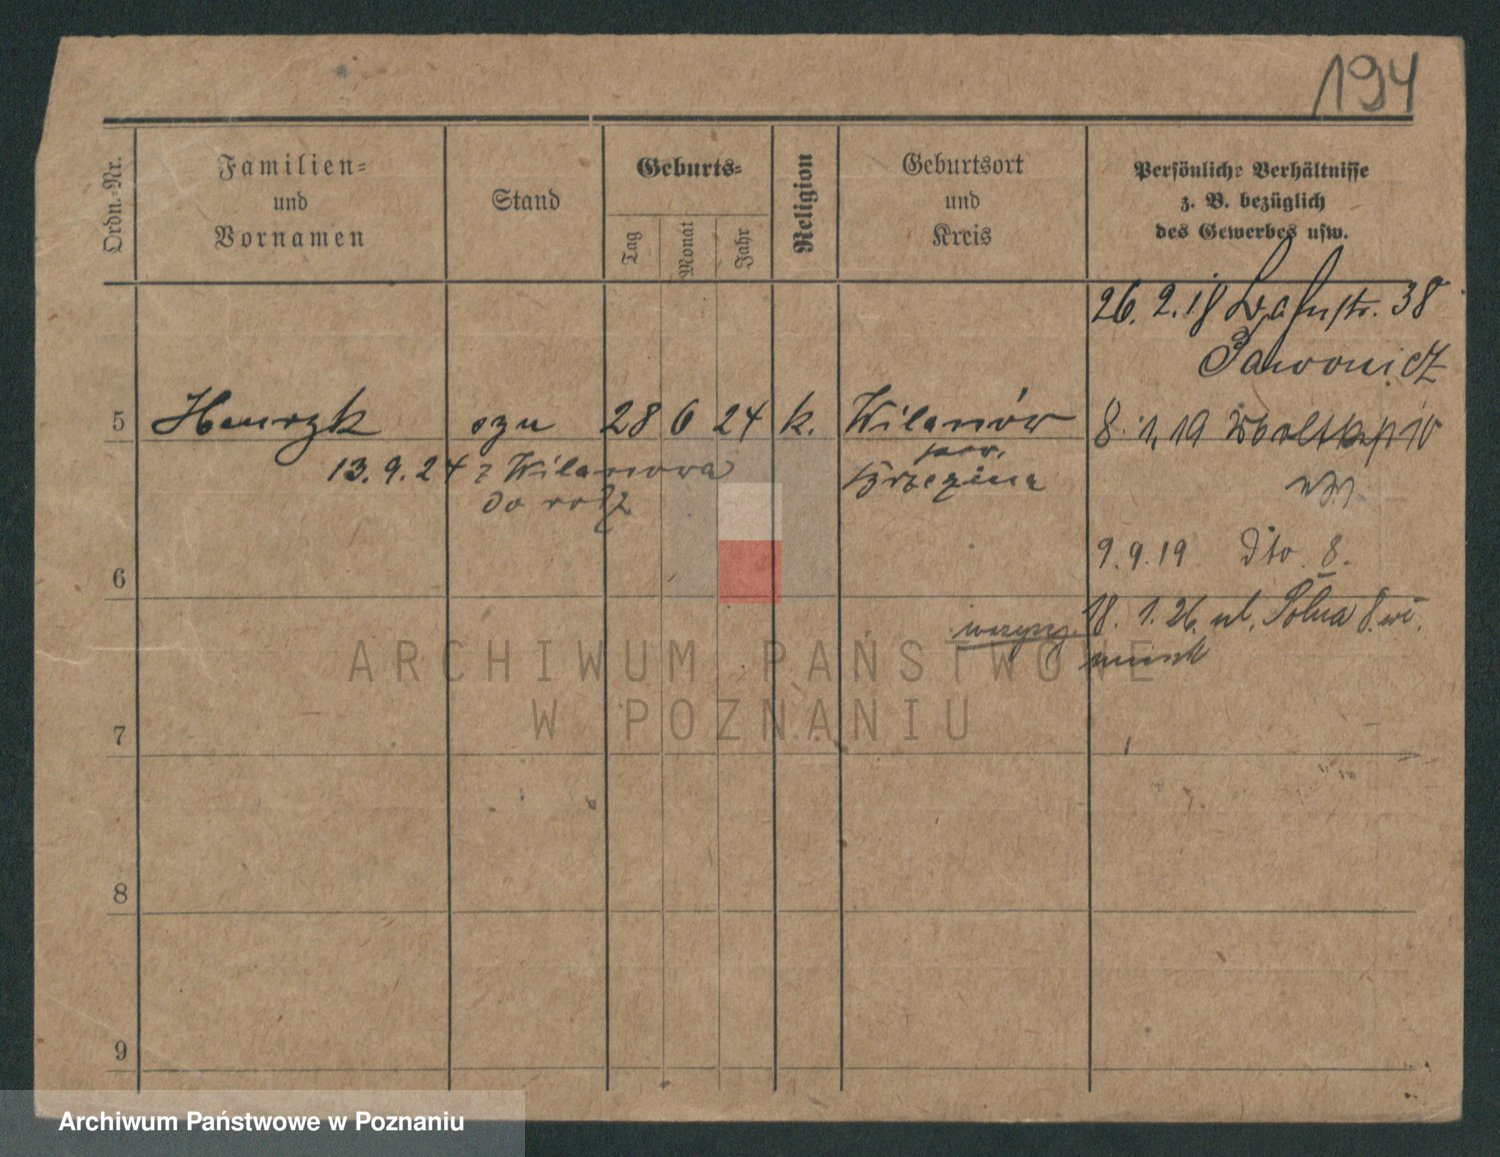 194
Ordn.-Nr.
Familien-
und
Vornamen
Stand
Geburts-
Tag
Monat
Jahr
Religion
Geburtsort
und
Kreis
Persönliche Verhältnisse
z. B. bezüglich
des Gewerbes usw.
26. 2. 18 38
5 Henryk syn 28 6 24 k. Wilanów
pow.
Brzezina
13. 9. 24 z Wilanowa
do rodz.
8. 1. 19
9. 9. 19 Dto 8.
6
18. 1. 26. ul. Polna 8.
7
8
9
ARCHIWUM PAŃSTWOWE
W POZNANIU
Archiwum Państwowe w Poznaniu